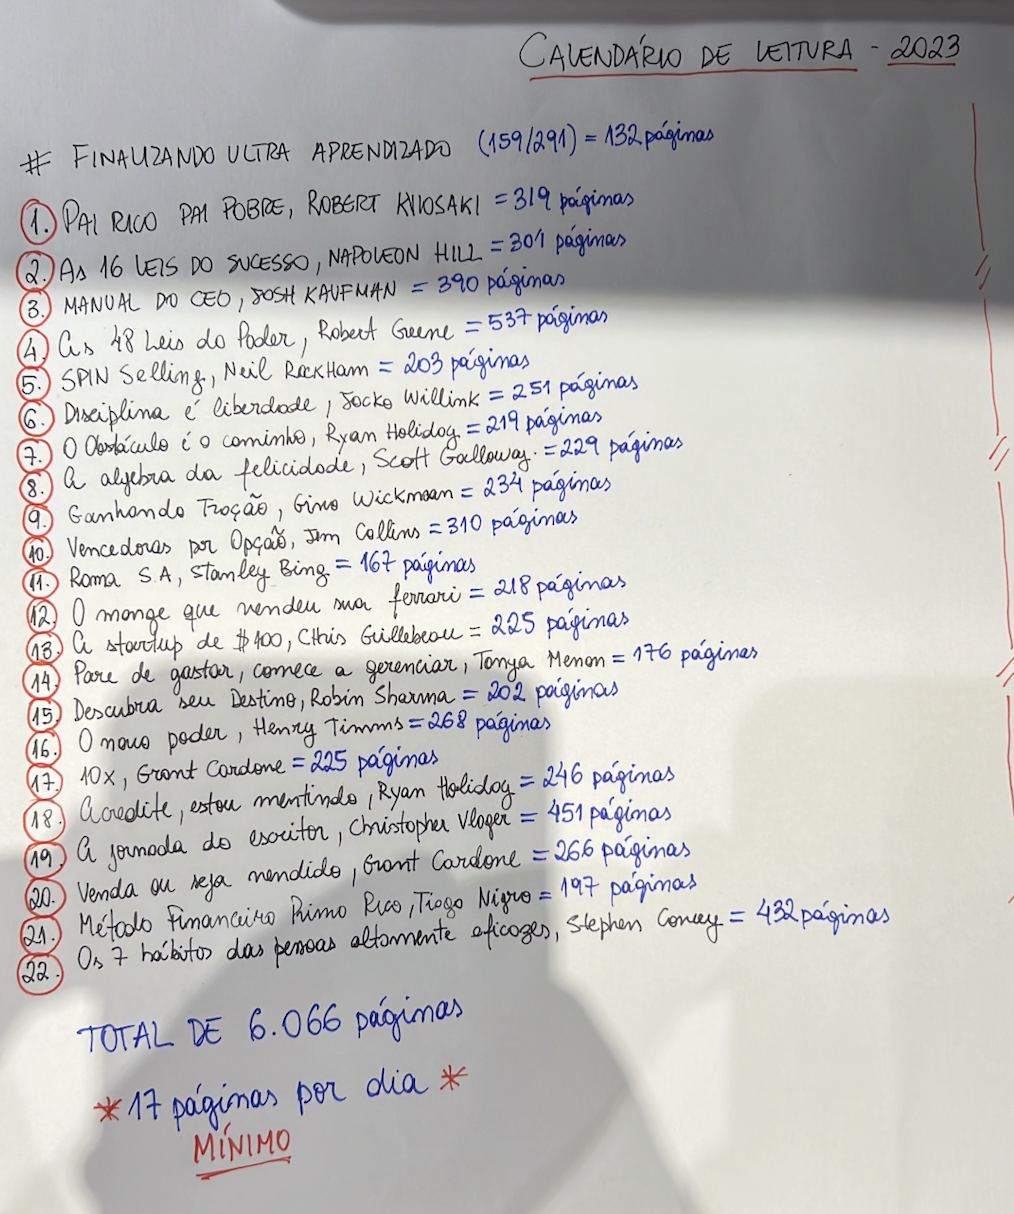 CALENDÁRIO DE LEITURA - 2023
# FINALIZANDO ULTRA APRENDIZADO (159/291) = 132 páginas
1. PAI RICO PAI POBRE, ROBERT KIIOSAKI = 319 páginas
2. AS 16 LEIS DO SUCESSO, NAPOLEON HILL = 301 páginas
3. MANUAL DO CEO, JOSH KAUFMAN = 390 páginas
4. As 48 Leis do Poder, Robert Greene = 537 páginas
5. SPIN Selling, Neil RackHam = 203 páginas
6. Disciplina é liberdade, Jocko Willink = 251 páginas
7. O Obstáculo é o caminho, Ryan Holiday = 219 páginas
8. A algebra da felicidade, Scott Galloway. = 229 páginas
9. Ganhando Tração, Gino Wickman = 234 páginas
10. Vencedoras por Opção, Jim Collins = 310 páginas
11. Roma S.A, Stanley Bing = 167 páginas
12. O monge que vendeu sua ferrari = 218 páginas
13. A startup de $100, CHris Guillebeau = 225 páginas
14. Pare de gastar, comece a gerenciar, Tonya Menon = 176 páginas
15. Descubra seu Destino, Robin Sharma = 202 páginas
16. O novo poder, Henry Timms = 268 páginas
17. 10x, Grant Cardone = 225 páginas
18. Acredite, estou mentindo, Ryan Holiday = 246 páginas
19. A jornada do escritor, Christopher Vloger = 451 páginas
20. Venda ou seja vendido, Grant Cardone = 266 páginas
21. Método Financeiro Primo Rico, Tiago Nigro = 197 páginas
22. Os 7 hábitos das pessoas altamente eficazes, Stephen Concey = 432 páginas
TOTAL DE 6.066 páginas
* 17 páginas por dia *
MÍNIMO